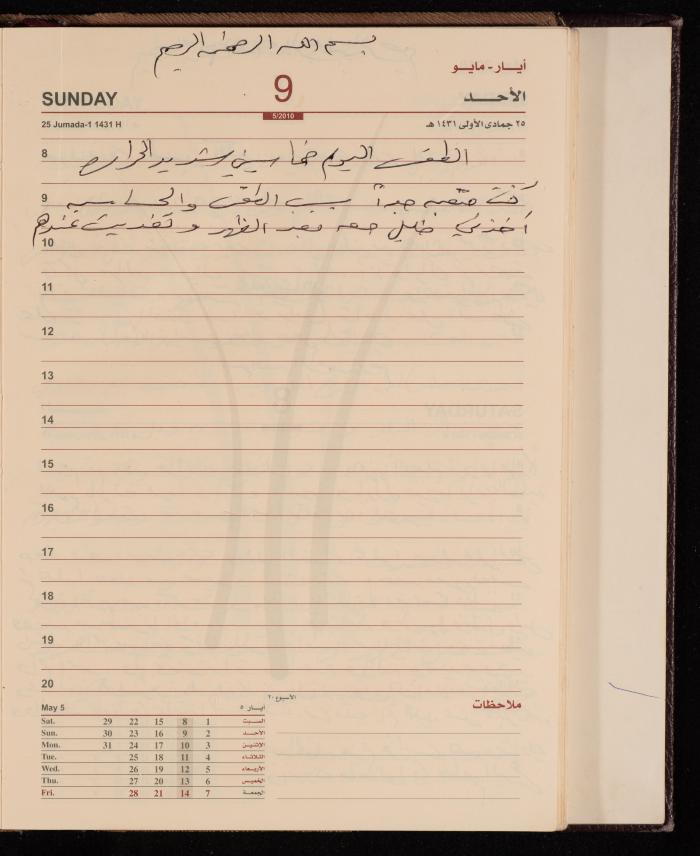 بسم الله الرحمن الرحيم
أيـار - مايـو
SUNDAY 9 الأحــد
25 Jumada-1 1431 H 5/2010 ٢٥ جمادى الأولى ١٤٣١ هـ
8 الطقس اليوم خماسيني شديد الحرارة
كنت متعبه جداً بسبب الطقس والحساسيه
9
أخذني خليل معه بعد الظهر وتغديت عندهم
10
11
12
13
14
15
16
17
18
19
20
May 5 أيـار ٥ الأسبوع ٢٠ ملاحظات
Sat. 29 22 15 8 1 السبت
Sun. 30 23 16 9 2 الأحـد
Mon. 31 24 17 10 3 الإثنين
Tue. 25 18 11 4 الثلاثاء
Wed. 26 19 12 5 الأربعاء
Thu. 27 20 13 6 الخميس
Fri. 28 21 14 7 الجمعة